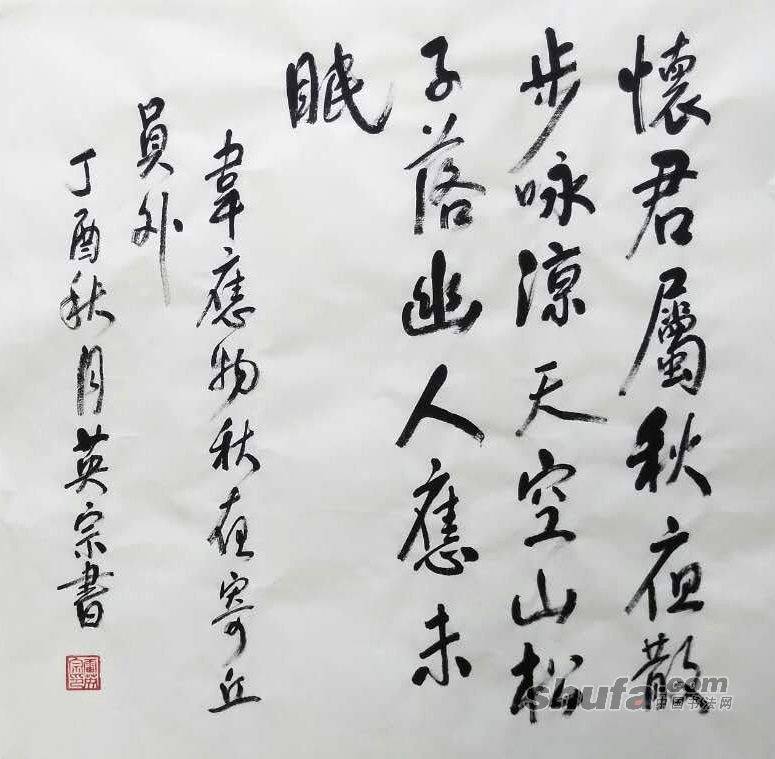 懷君屬秋夜散
步咏涼天空山松
子落幽人應未
眠
韋應物秋夜寄丘
員外
丁酉秋月英宗書
shufa.com
中国书法网